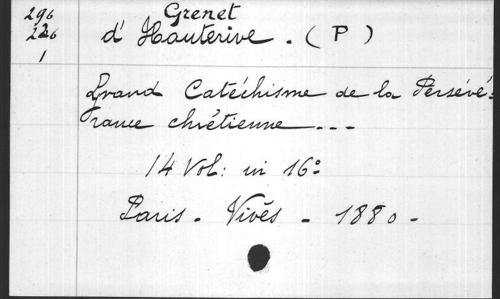 296
226
1
Grenet
d'Hauterive. (P)
Grand Catéchisme de la Persévé=
rance chrétienne ---
14 Vol: in 16º
Paris - Vivès - 1880 -